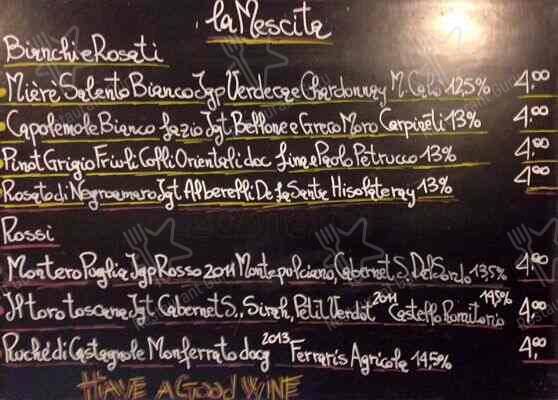 la Mescita
Bianchi e Rosati
Mièré Salento Bianco Igp Verdeca e Chardonnay M. Calò 12,5% 4,00
Capolemole Bianco Lazio Igt Bellone e Greco Moro Carpineti 13% 4,00
Pinot Grigio Friuli Colli Orientali doc Lina e Paolo Petrucco 13% 4,00
Rosato di Negroamaro Igt Alberelli De La Santa 13% 4,00
Rossi
Montero Puglia Igp Rosso 2011 Montepulciano, Cabernet S. Del Sordo 13,5% 4,00
Il toro toscana Igt Cabernet S., Sirah, Petit Verdot 2011 Castello Romitorio 14,50% 4,00
Ruchè di Castagnole Monferrato docg 2013 Ferraris Agricola 14,50% 4,00
HAVE A GOOD WINE